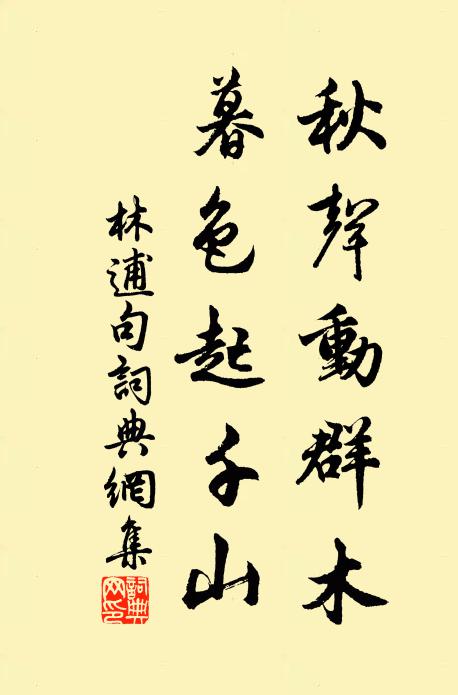 秋聲動群木
暮色起千山
林逋句詞典網集
詞典网印